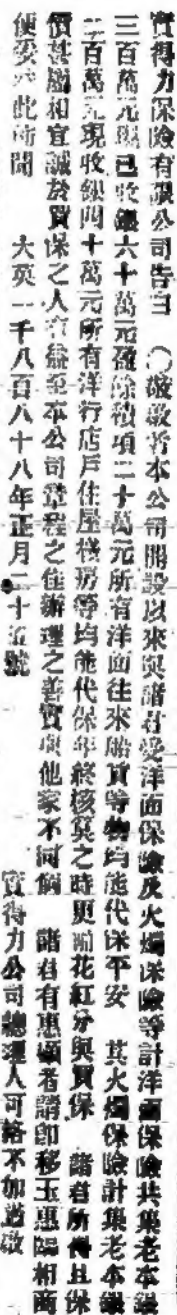 實得力保險有限公司告白　〇敬啟者本公司開設以來與諸君受洋面保險及火燭保險等計洋面保險共集老本銀
三百萬元現已收銀六十萬元盈餘積項二十萬元所有洋面往來船貨等物均能代保平安　其火燭保險計集老本銀
二百萬元現收銀四十萬元所有洋行店戶住屋棧房等均能代保年終核算之時更加花紅分與買保　諸君所得且保
價甚廉相宜誠於買保之人有益至本公司章程之佳辦理之善實與他家不同倘　諸君有惠顧者請即移玉惠臨相商
便妥六此布聞　大英一千八百八十八年正月二十五號　實得力公司總理人可格不加過啟